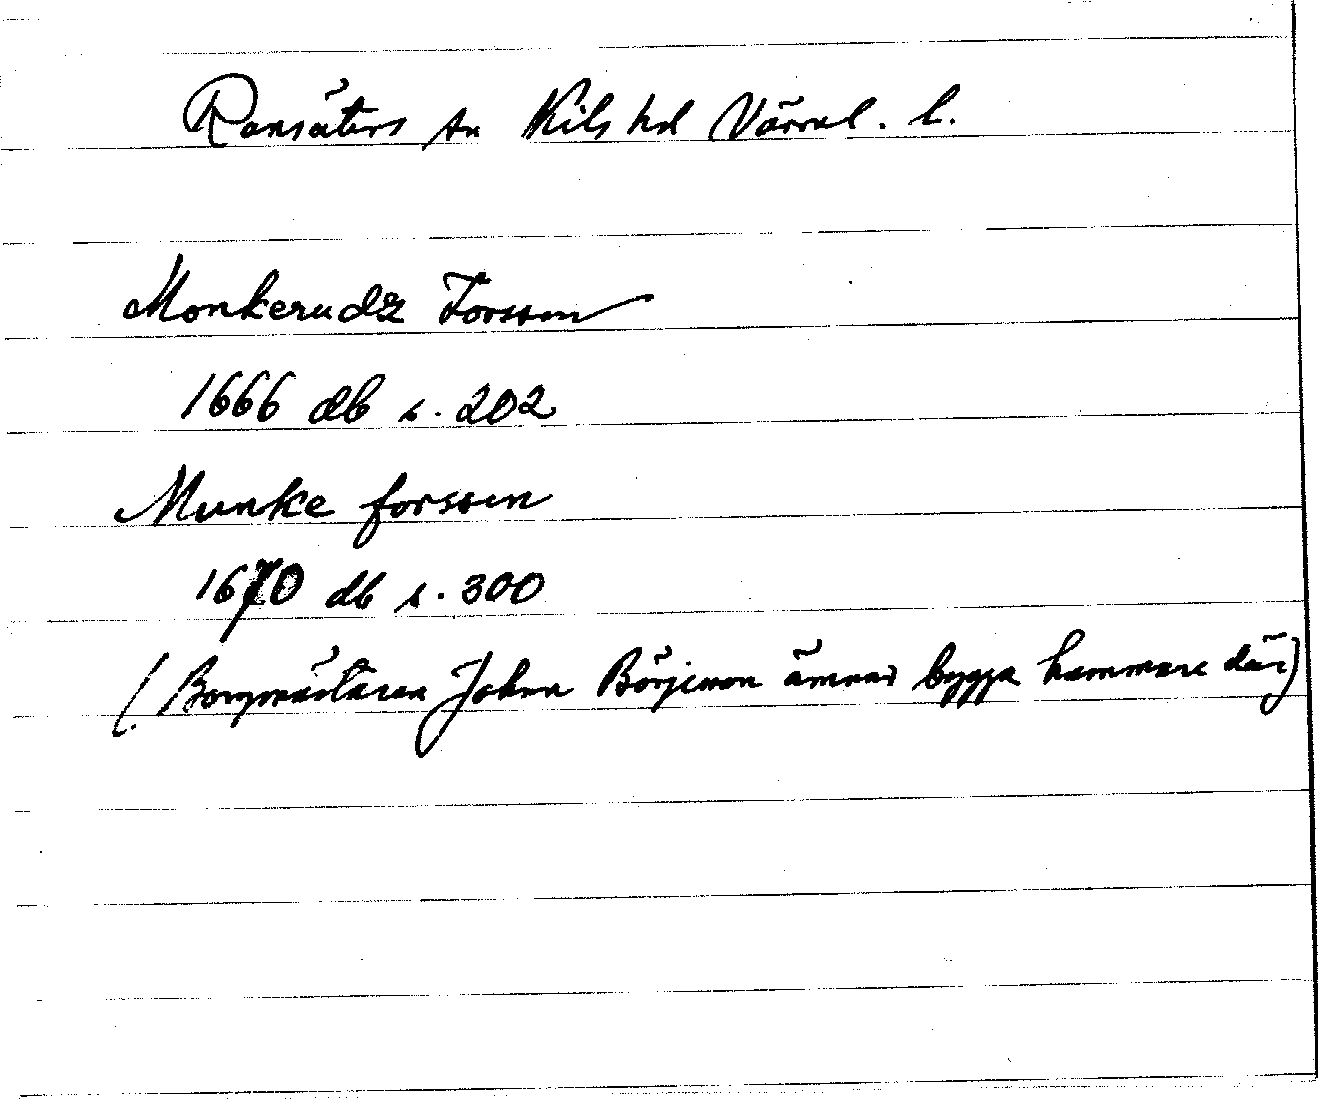 Ransäters sn Kils hd Värml. l.
Monkerudz Forssen
1666 db s. 202
Munke forssen
1670 db s. 300
(Borgmästaren Johan Börjeson ämnar bygga hammare där)